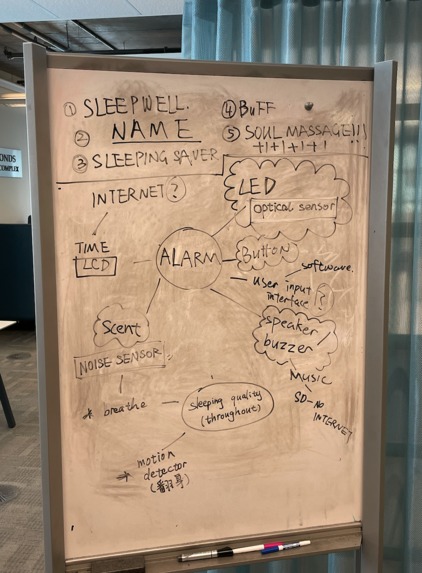 ① SLEEPWELL.
② NAME
③ SLEEPING SAVER
④ BUFF
⑤ SOUL MASSAGE!!!
+1+1+1+1
INTERNET?
LED
optical sensor
TIME
LCD
ALARM
Button
software.
user input
interface
Scent
speaker/
buzzer
NOISE SENSOR
Music
SD-NO
INTERNET
* breathe
sleeping quality
(throughout)
motion
detector
ONDS
COMPLEX